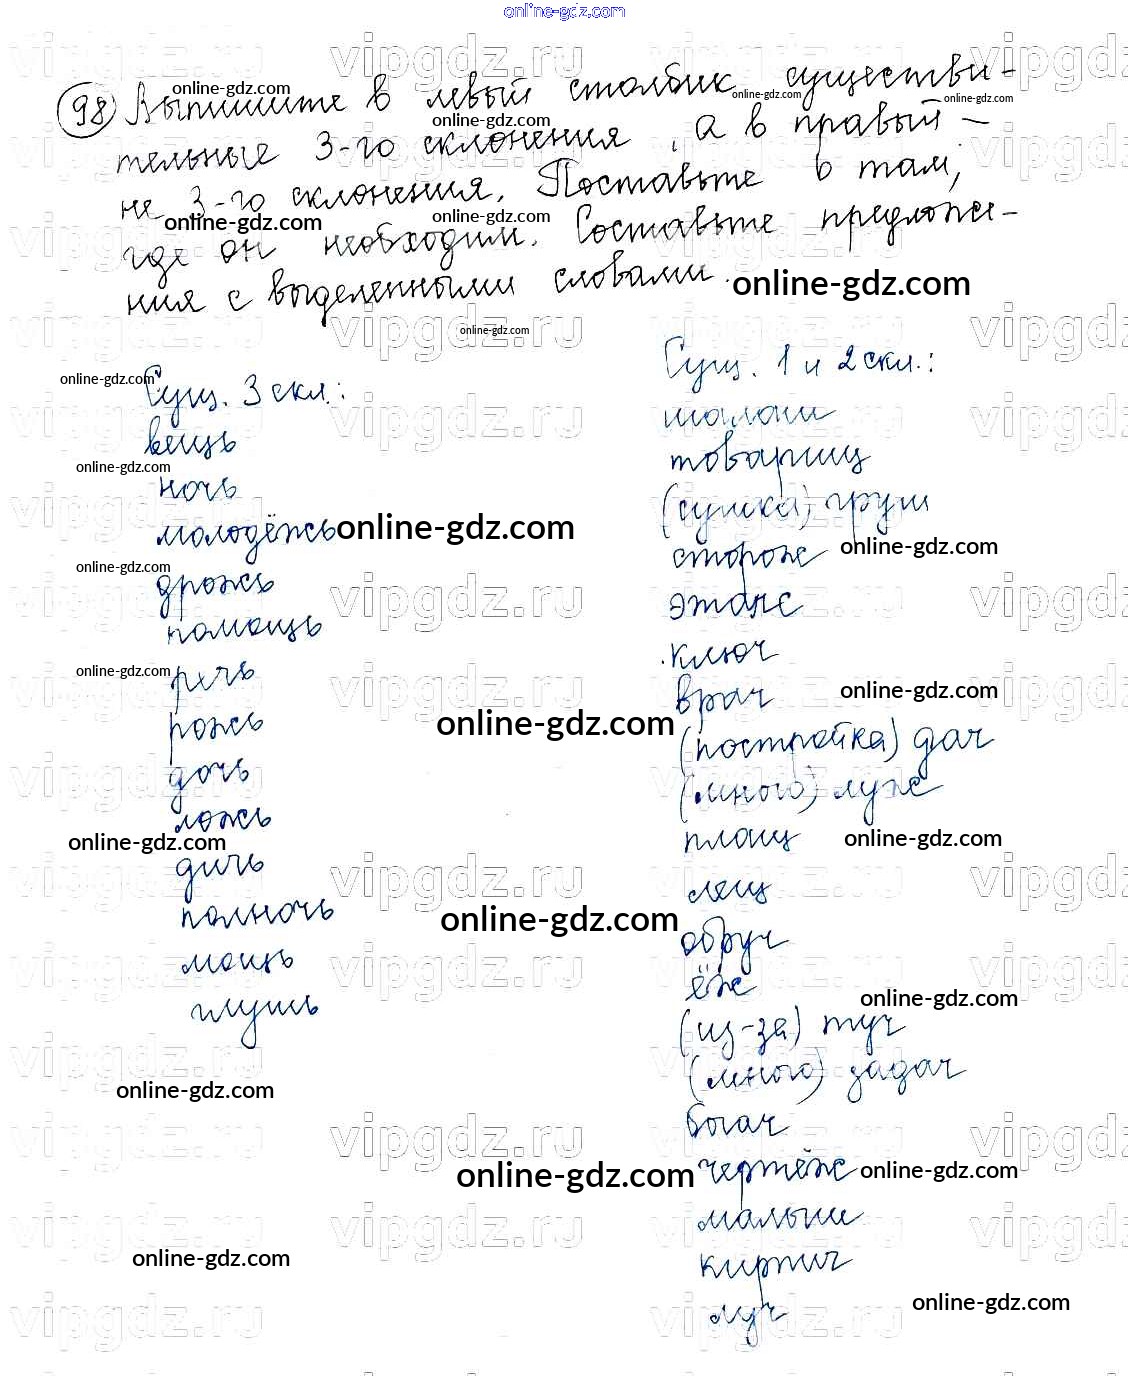 online-gdz.com
98 Выпишите в левый столбик существи-
тельные 3-го склонения, а в правый -
не 3-го склонения. Поставьте ь там,
где он необходим. Составьте предложе-
ния с выделенными словами.
Сущ. 3 скл.:
вещь
ночь
молодёжь
дрожь
помощь
речь
рожь
дочь
ложь
дичь
полночь
мощь
глушь
Сущ. 1 и 2 скл.:
шалаш
товарищ
(сушка) груш
сторож
этаж
ключ
врач
(постройка) дач
(много) луж
плащ
лещ
обруч
ёж
(из-за) туч
(много) задач
богач
чертёж
малыш
кирпич
луч
vipgdz.ru